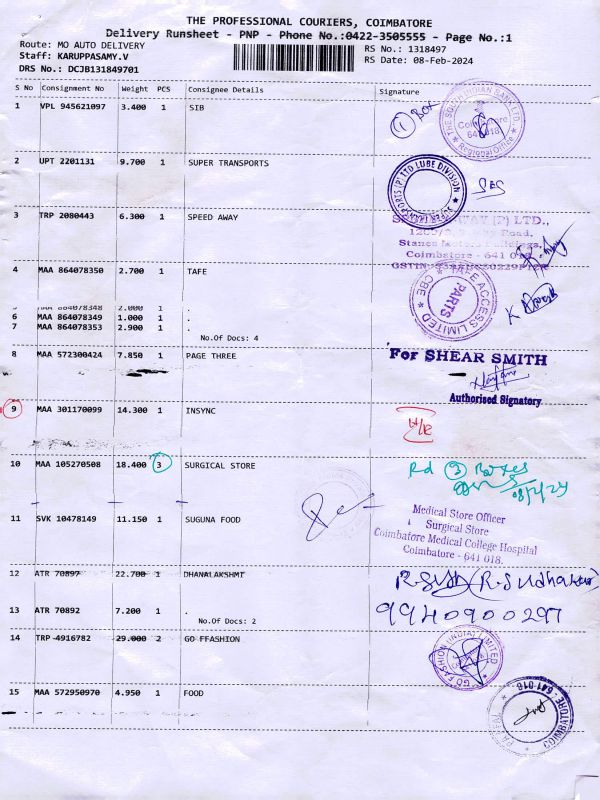 THE PROFESSIONAL COURIERS, COIMBATORE
Delivery Runsheet - PNP - Phone No.:0422-3505555 - Page No.:1
Route: MO AUTO DELIVERY
RS No.: 1318497
Staff: KARUPPASAMY.V
RS Date: 08-Feb-2024
DRS No.: DCJB131849701
S No Consignment No Weight PCS Consignee Details Signature
1 VPL 945621097 3.400 1 SIB
1 Box
THE SOUTH INDIAN BANK LTD.
Coimbatore
641 018
Regional Office
2 UPT 2201131 9.700 1 SUPER TRANSPORTS
SUPER TRANSPORTS (P) LTD LUBE DIVISION
3 TRP 2080443 6.300 1 SPEED AWAY
(P) LTD.,
Road,
Stanes
Coimbatore - 641 018.
4 MAA 864078350 2.700 1 TAFE
TAFE ACCESS LIMITED CBE
PARTS
5 MAA 864078348 2.000 1 .
6 MAA 864078349 1.000 1 .
7 MAA 864078353 2.900 1 .
No.Of Docs: 4
8 MAA 572300424 7.850 1 PAGE THREE
For SHEAR SMITH
Authorised Signatory
9 MAA 301170099 14.300 1 INSYNC
10 MAA 105270508 18.400 3 SURGICAL STORE
Rd 3 Boxes
08/2/24
11 SVK 10478149 11.150 1 SUGUNA FOOD
Medical Store Officer
Surgical Store
Coimbatore Medical College Hospital
Coimbatore - 641 018.
12 ATR 70897 22.700 1 DHANALAKSHMI
(R.Sudhakar)
13 ATR 70892 7.200 1 .
No.Of Docs: 2
9940900297
14 TRP 4916782 29.000 2 GO FFASHION
GO FASHION (INDIA) LIMITED
15 MAA 572950970 4.950 1 FOOD
COIMBATORE - 641 018